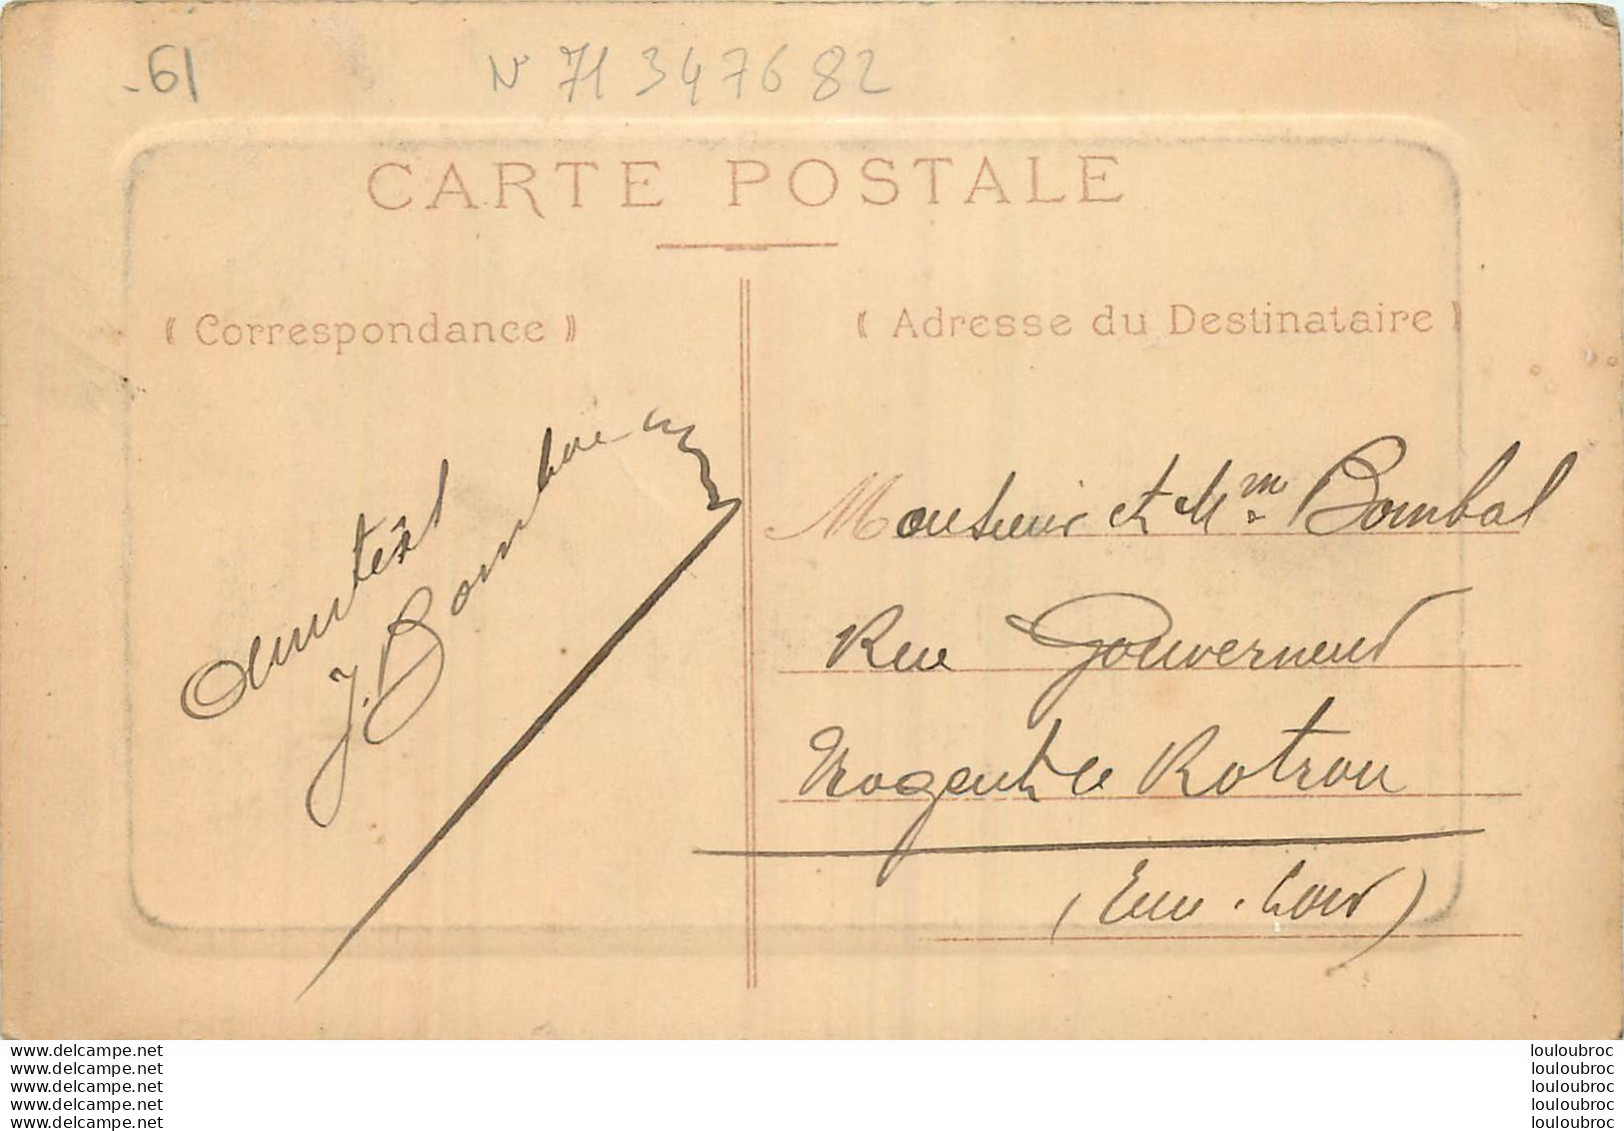 -61
N° 71 347682
CARTE POSTALE
⸨ Correspondance ⸩
⸨ Adresse du Destinataire ⸩
Amitiés
J. Bombal
Monsieur et Mme Bombal
Rue Gouverneur
Nogent le Rotrou
(Eure. Loir)
www.delcampe.net
www.delcampe.net
www.delcampe.net
www.delcampe.net
www.delcampe.net
louloubroc
louloubroc
louloubroc
louloubroc
louloubroc